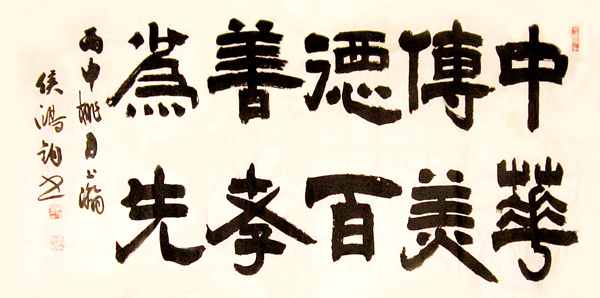 中華
傳美
德百
善孝
為先
丙申桃月上瀚
侯鴻